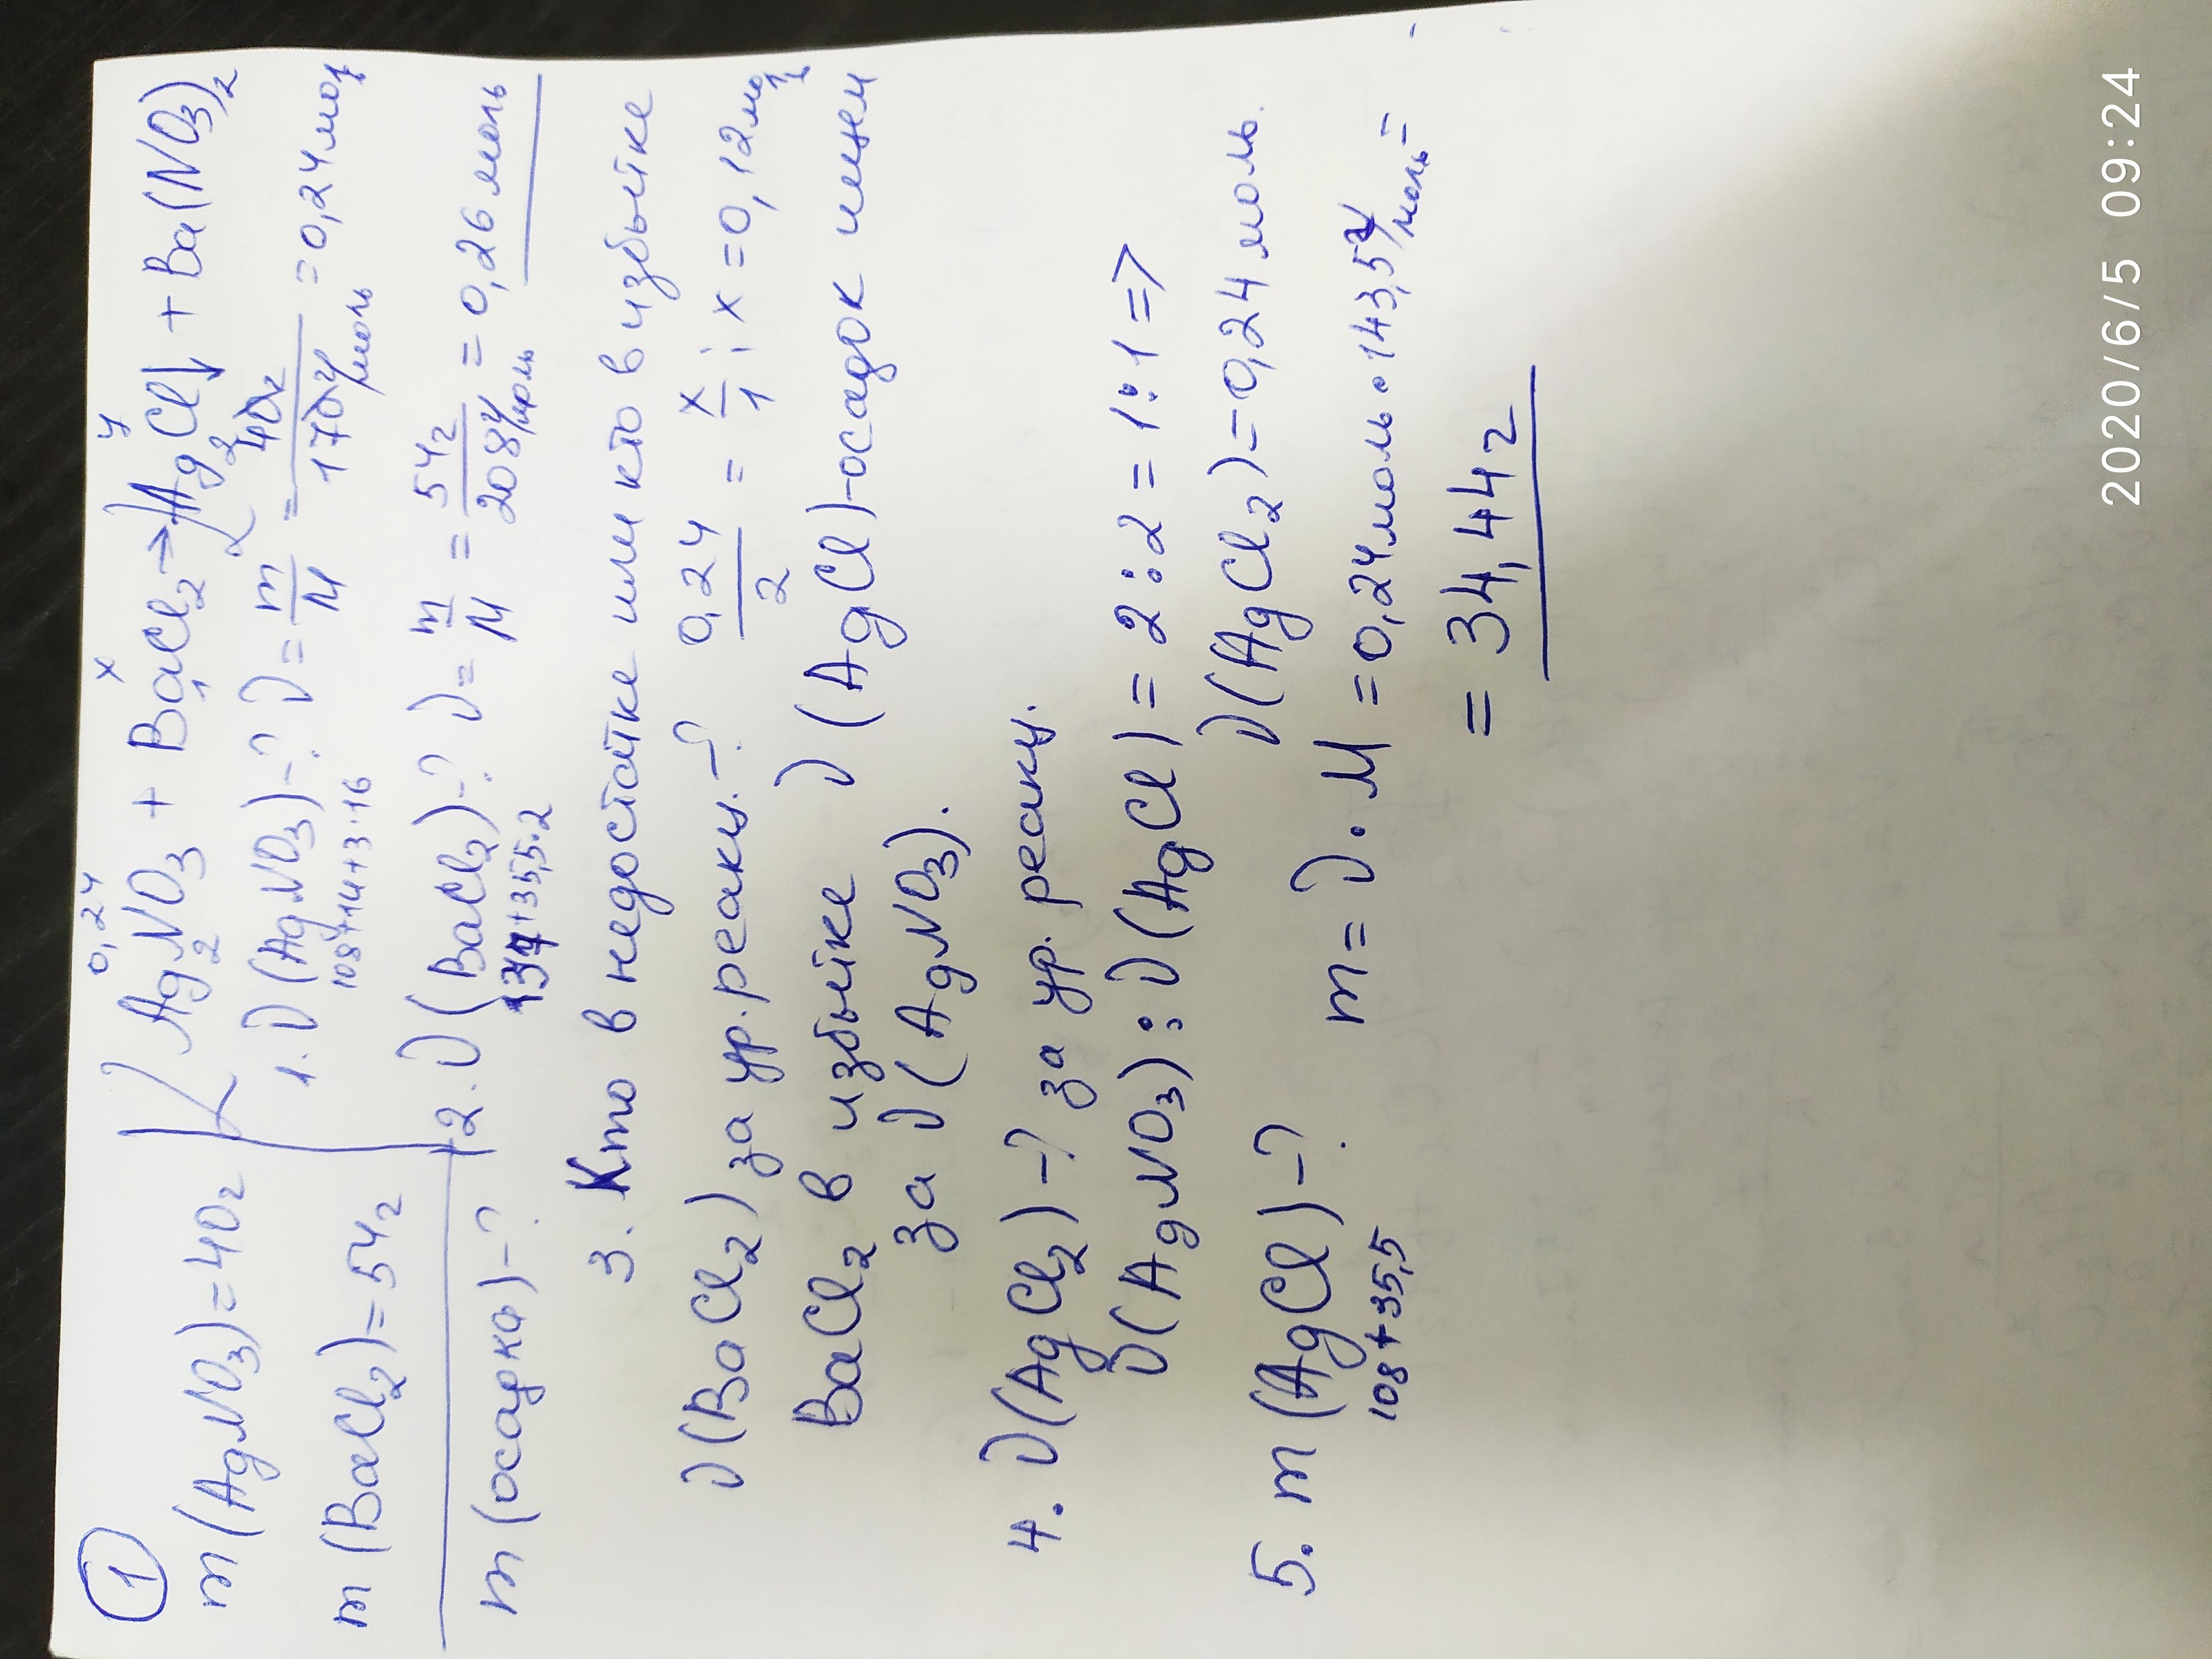 1
m(AgNO3)=40г
m(BaCl2)=54г
m(осадка)-?
0,24 x y
2AgNO3 + BaCl2 → 2AgCl↓ + Ba(NO3)2
1. ν(AgNO3)-? ν = m/M = 40г/170г/моль = 0,24моль
108+14+3·16
2. ν(BaCl2)-? ν = m/M = 54г/208г/моль = 0,26 моль
137+35,5·2
3. Кто в недостатке или кто в избытке
ν(BaCl2) за ур.реакц.-? 0,24/2 = x/1; x=0,12моль
BaCl2 в избытке ν(AgCl)-осадок ищем
за ν(AgNO3).
4. ν(AgCl2)-? за ур. реакц.
ν(AgNO3):ν(AgCl) = 2:2 = 1:1 =>
ν(AgCl2)=0,24 моль.
5. m(AgCl)-? m= ν·M = 0,24моль·143,5г/моль =
108+35,5
= 34,44г
2020/6/5 09:24